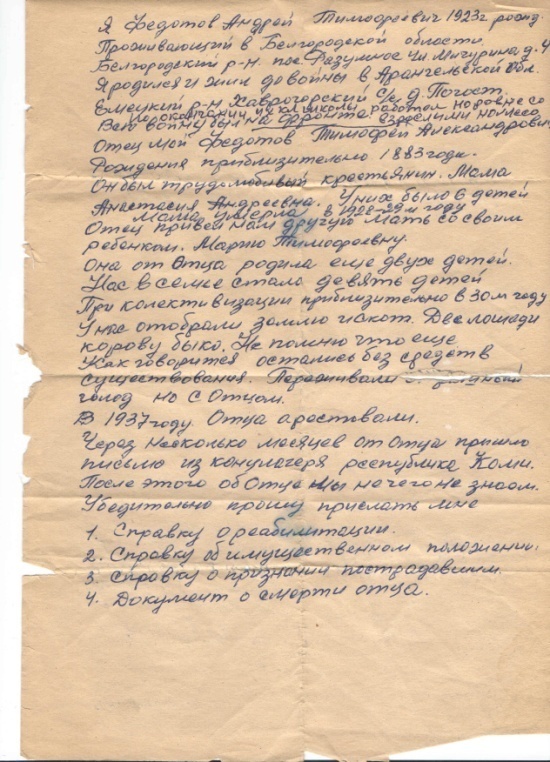 Я Федотов Андрей Тимофеевич 1923г рожд.
Проживающий в Белгородской области.
Белгородский р-н. пос Разумное Ул Мичурина д. 4
Я родился и жил до войны в Арангельской обл.
Емецкий р-н Хаврогорский С/с д. Погост.
По окончании школы, работал наровне со
В ВОВ войну был на фронте. взрослыми
Отец мой Федотов Тимофей Александрович
Рождения приблизительно 1883 года.
Он был трудолюбивый крестьянин. Мама
Анастасия Андреевна. У них было 6 детей
Мама умерла в 1928-29 м году
Отец привел нам другую Мать со своим
ребенком. Марию Тимофеевну.
Она от Отца родила еще двух детей.
Нас в семье стало девять детей
При колективизации приблизительно в 30м году
У нас отобрали землю и скот. Две лошади
корову быка. Не помню что еще
Как говорится остались без средств
существования. Переживали
голод но с Отцом.
В 1937 году. Отца арестовали.
Через несколько месяцев от Отца пришло
письмо из концлагеря республика Коми.
После этого об Отце мы ничего не знаем.
Убедительно прошу прислать мне
1. Справку о реабилитации.
2. Справку об имущественном положении.
3. Справку о признании пострадавшим.
4. Документ о смерти отца.